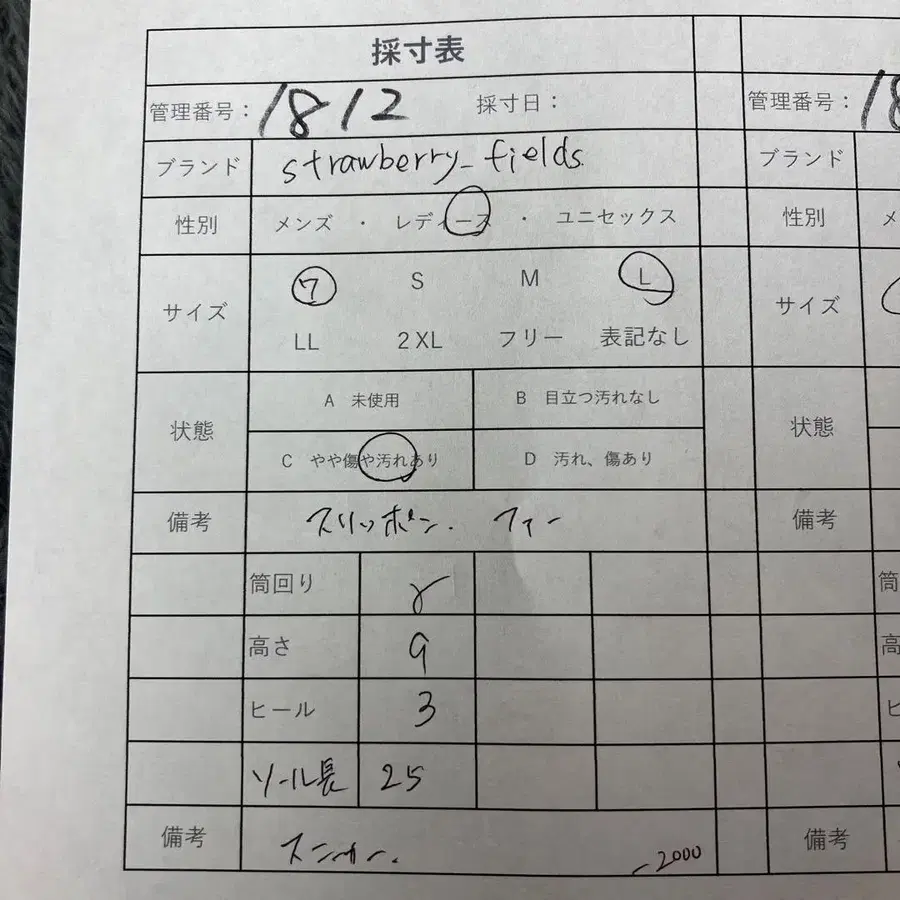 採寸表
管理番号： 1812 採寸日：
ブランド strawberry_fields
性別 メンズ ・ レディース ・ ユニセックス
サイズ 7 S M L
LL 2XL フリー 表記なし
状態 A 未使用 B 目立つ汚れなし
C やや傷や汚れあり D 汚れ、傷あり
備考 スリッポン. ファー
筒回り
高さ 9
ヒール 3
ソール長 25
備考 -2000
管理番号： 18
ブランド
性別 メ
サイズ
状態
備考
筒
高
ヒ
備考